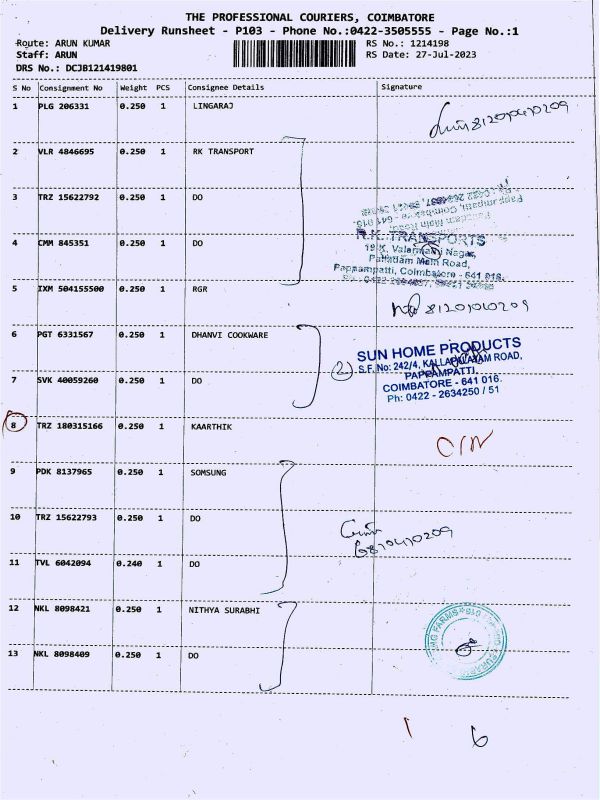 THE PROFESSIONAL COURIERS, COIMBATORE
Delivery Runsheet - P103 - Phone No.:0422-3505555 - Page No.:1
Route: ARUN KUMAR RS No.: 1214198
Staff: ARUN RS Date: 27-Jul-2023
DRS No.: DCJB121419801
S No Consignment No Weight PCS Consignee Details Signature
1 PLG 206331 0.250 1 LINGARAJ
2 VLR 4846695 0.250 1 RK TRANSPORT
3 TRZ 15622792 0.250 1 DO
4 CMM 845351 0.250 1 DO
R.K.TRANSPORTS
Nagar,
Palladam Main Road,
Pappampatti, Coimbatore - 641 016.
5 IXM 504155500 0.250 1 RGR
6 PGT 6331567 0.250 1 DHANVI COOKWARE
2
SUN HOME PRODUCTS
S.F. No: 242/4, KALLAPALAYAM ROAD,
PAPPAMPATTI,
COIMBATORE - 641 016.
Ph: 0422 - 2634250 / 51
7 SVK 40059260 0.250 1 DO
8 TRZ 180315166 0.250 1 KAARTHIK
9 PDK 8137965 0.250 1 SOMSUNG
10 TRZ 15622793 0.250 1 DO
11 TVL 6042094 0.240 1 DO
12 NKL 8098421 0.250 1 NITHYA SURABHI
13 NKL 8098409 0.250 1 DO
FARMS
1 6